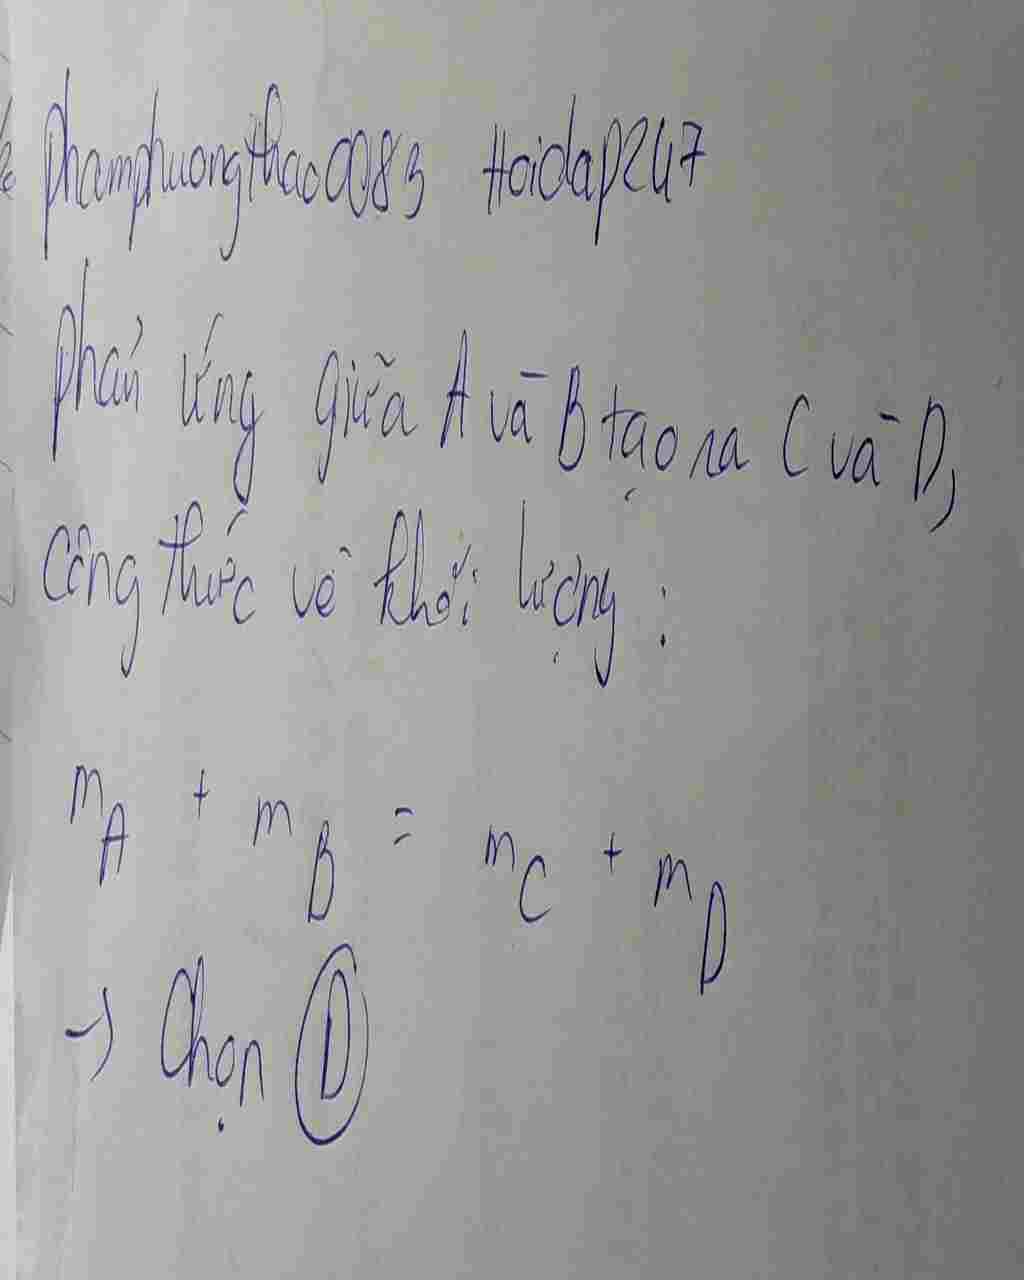 phamphuongthao0083 Hoidap247
phản ứng giữa A và B tạo ra C và D,
công thức về khối lượng :
mA + mB = mC + mD
→ Chọn D